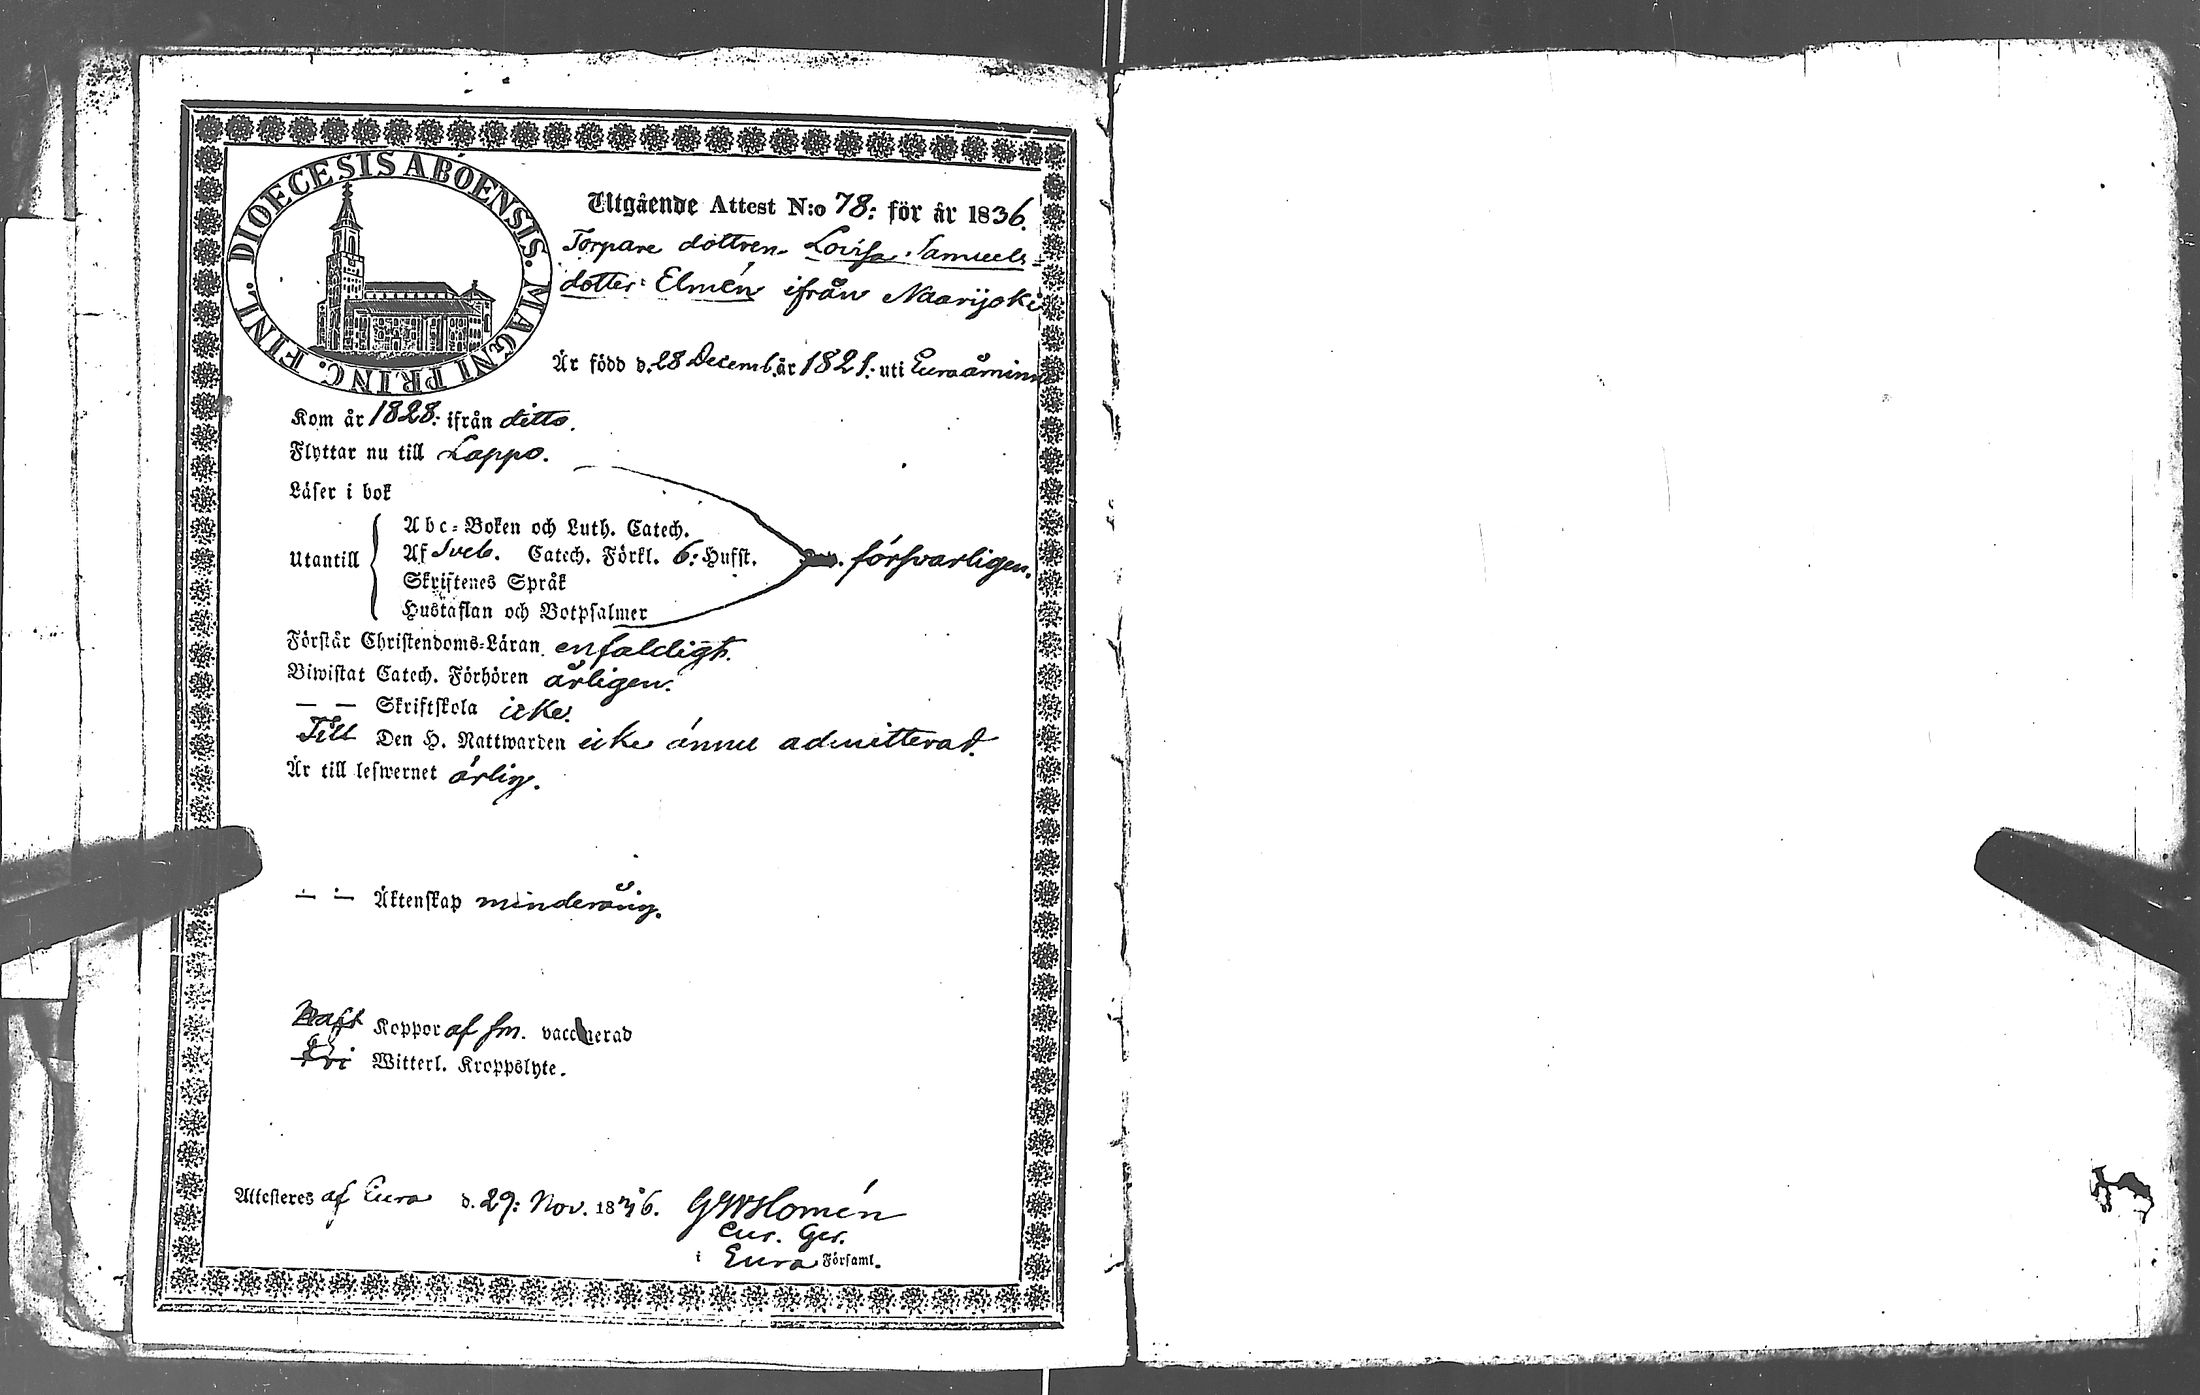 DIOECESIS ABOENSIS. MAGNI PRINC. FINL.
Utgående Attest N:o 78: för år 1836.
Torpare dottren Lovisa Samuels-
dotter Elmén ifrån Naarijoki
Är född d. 28 Decemb. år 1821: uti Euraåminne
Kom år 1828: ifrån ditto.
Flyttar nu till Lappo.
Läser i bok
Abc-Boken och Luth. Catech.
Utantill Af Sveb. Catech. Förkl. 6: Hufst. försvarligen.
Skriftenes Språk
Hustaflan och Botpsalmer
Förstår Christendoms-Läran enfaldigt.
Biwistat Catech. Förhören årligen.
— — Skriftskola icke.
Till Den H. Nattwarden icke ännu admitterad.
Är till lefwernet ärlig.
— — Äktenskap minderårig.
Haft Koppor af sm. vaccinerad
Fri Witterl. Kroppslyte.
Attesteres af Eura d. 29: Nov. 1836. GWHomén
Cur. Ger.
i Eura Församl.